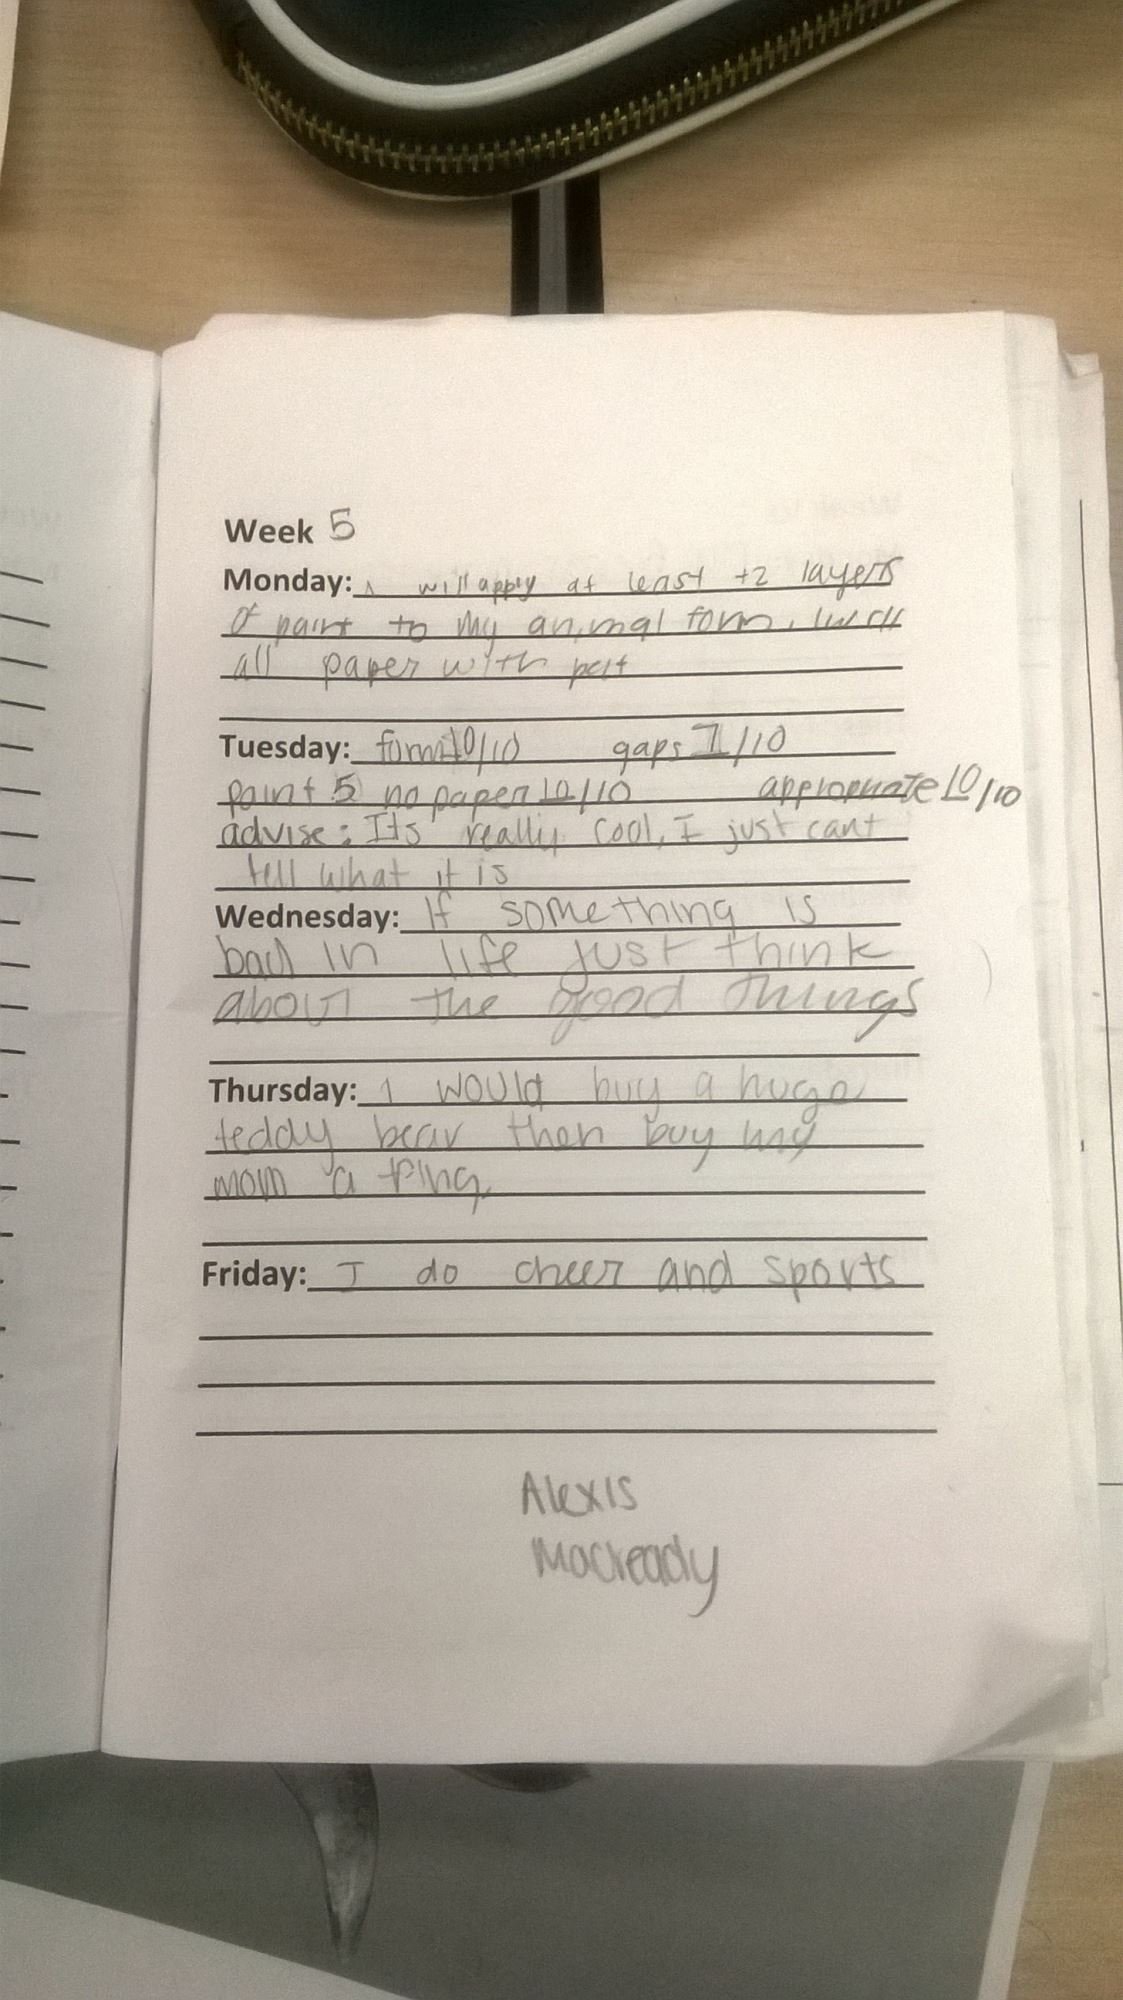 Week 5
Monday: I will apply at least +2 layers
of paint to my animal form. I will
all paper with
Tuesday: form 10/10 gaps 1/10
paint 5 no paper 10/10 appropriate 10/10
advise: Its really cool, I just cant
tell what it is
Wednesday: If something is
bad in life just think
about the good things
Thursday: I would buy a huge
teddy bear then buy my
mom a ring.
Friday: I do cheer and sports
Alexis
Macready